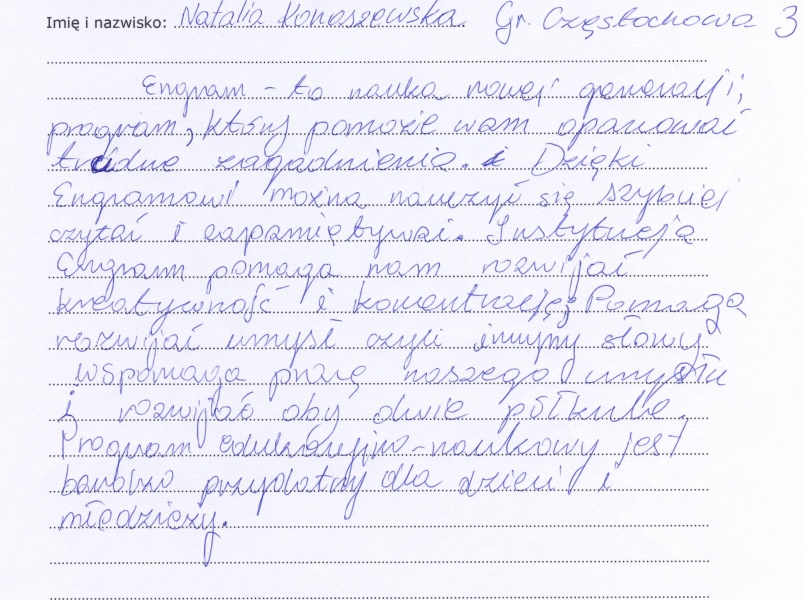 Imię i nazwisko: Natalia Konaszewska. Gr. Częstochowa 3
Engram - to nauka nowej generacji;
program, który pomoże wam opanować
trudne zagadnienia. Dzięki
Engramowi można nauczyć się szybciej
czytać i zapamiętywać. Instytucja
Engram pomaga nam rozwijać
kreatywność i koncentrację; Pomaga
rozwijać umysł czyli innymi słowy
wspomaga pracę naszego umysłu
i rozwijać oby dwie półkule.
Program edukacyjno-naukowy jest
bardzo przydatny dla dzieci i
młodzieży.